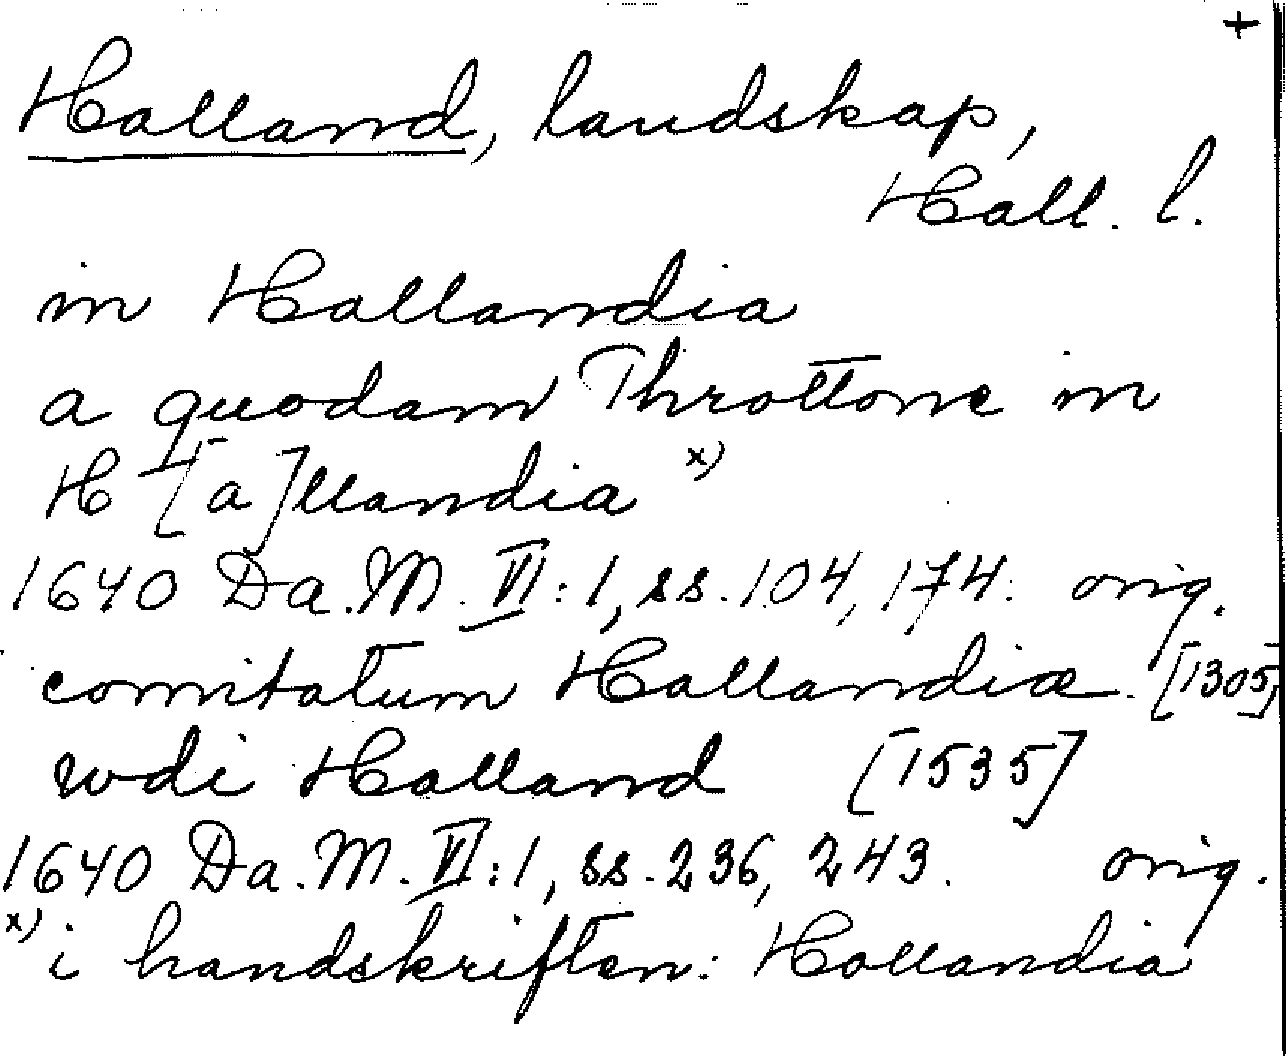 +
Halland, landskap,
Hall. l.
in Hallandia
a quodam Throttone in
H[a]llandia x)
1640 Da. M. VI:1, ss. 104, 174. orig.
comitatum Hallandiæ. [1305]
wdi Halland [1535]
1640 Da. M. VI:1, ss. 236, 243. orig.
x) i handskriften: Hollandia